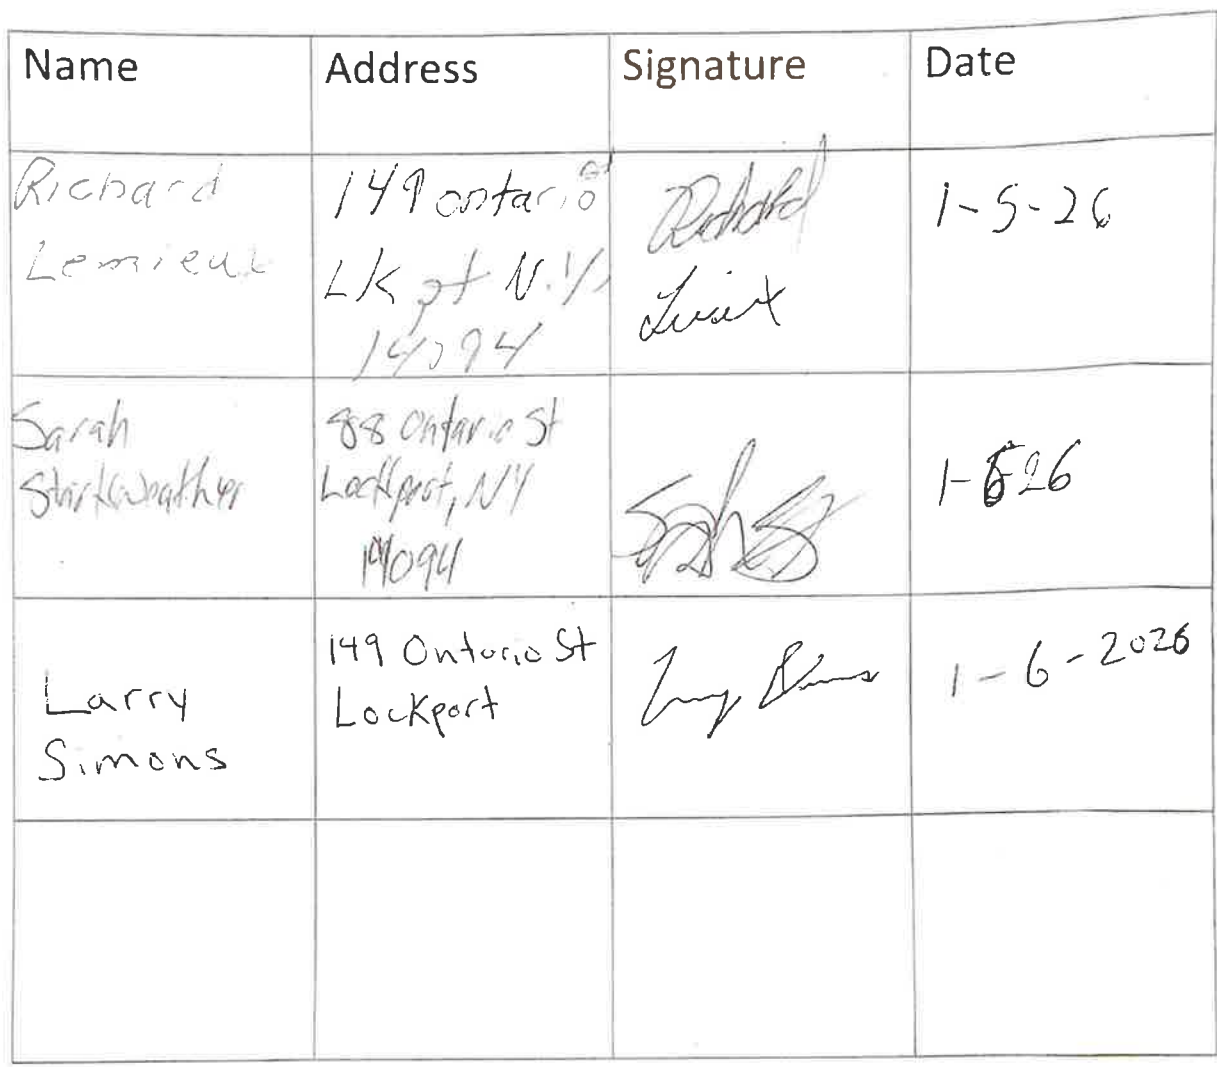 Name Address Signature Date
Richard
Lemieux
149 ontario St
Lkpt N.Y.
14094
Richard
1-5-26
Sarah
Starkweather
88 Ontario St
Lockport, NY
14094
1-26
Larry
Simons
149 Ontario St
Lockport
1-6-2026